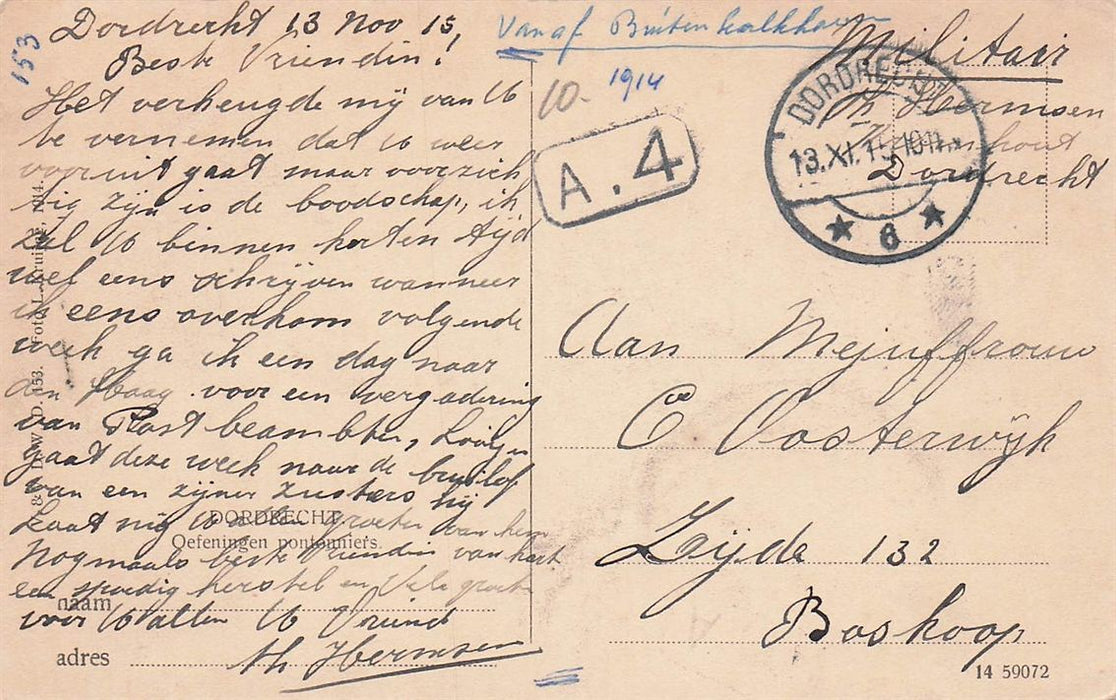 153
Dordrecht 13 Nov 15
Beste Vriendin!
Het verheugde mij van U
te vernemen dat U weer
vooruit gaat maar voorzich
tig zijn is de boodschap, ik
zal U binnen korten tijd
wel eens schrijven wanneer
ik eens overkom volgende
week ga ik een dag naar
den Haag voor een vergadering
van Post beambten,
gaat deze week naar de bruilof
van een zijner zusters hij
Laat mij U groeten van hem
Nogmaals beste Vriendin van hart
een spoedig herstel en Vele groet
voor U allen U Vriend
Th Hermsen
DORDRECHT.
Oefeningen pontonniers.
naam
adres
D. 153. Foto J. 1914.
Vanaf
10- 1914
A. 4
Militair
Th Hermsen
Dordrecht
DORDRECHT
13.XI.15 10-11
6
Aan Mejuffrouw
C Oosterwijk
Zijde 132
Boskoop
14 59072